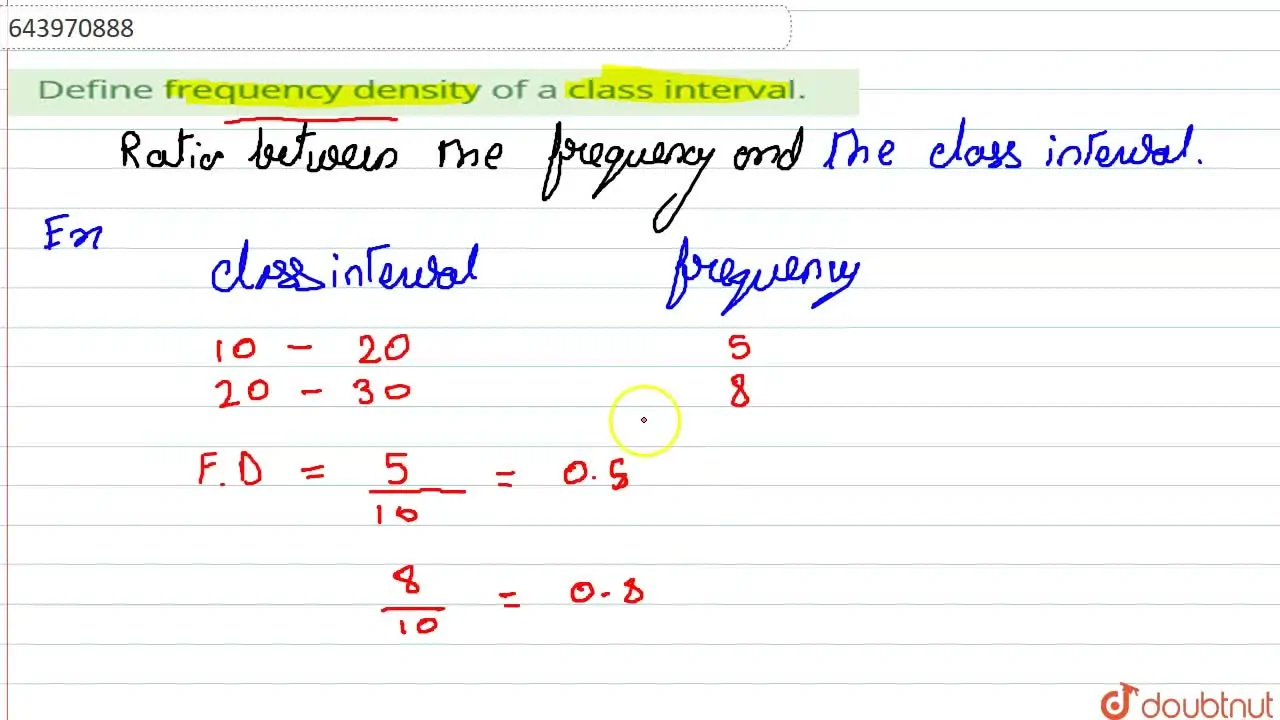 643970888
Define frequency density of a class interval.
Ratio between the frequency and the class interval.
Ex
class interval frequency
10 - 20 5
20 - 30 8
F.D = 5/10 = 0.5
8/10 = 0.8
doubtnut